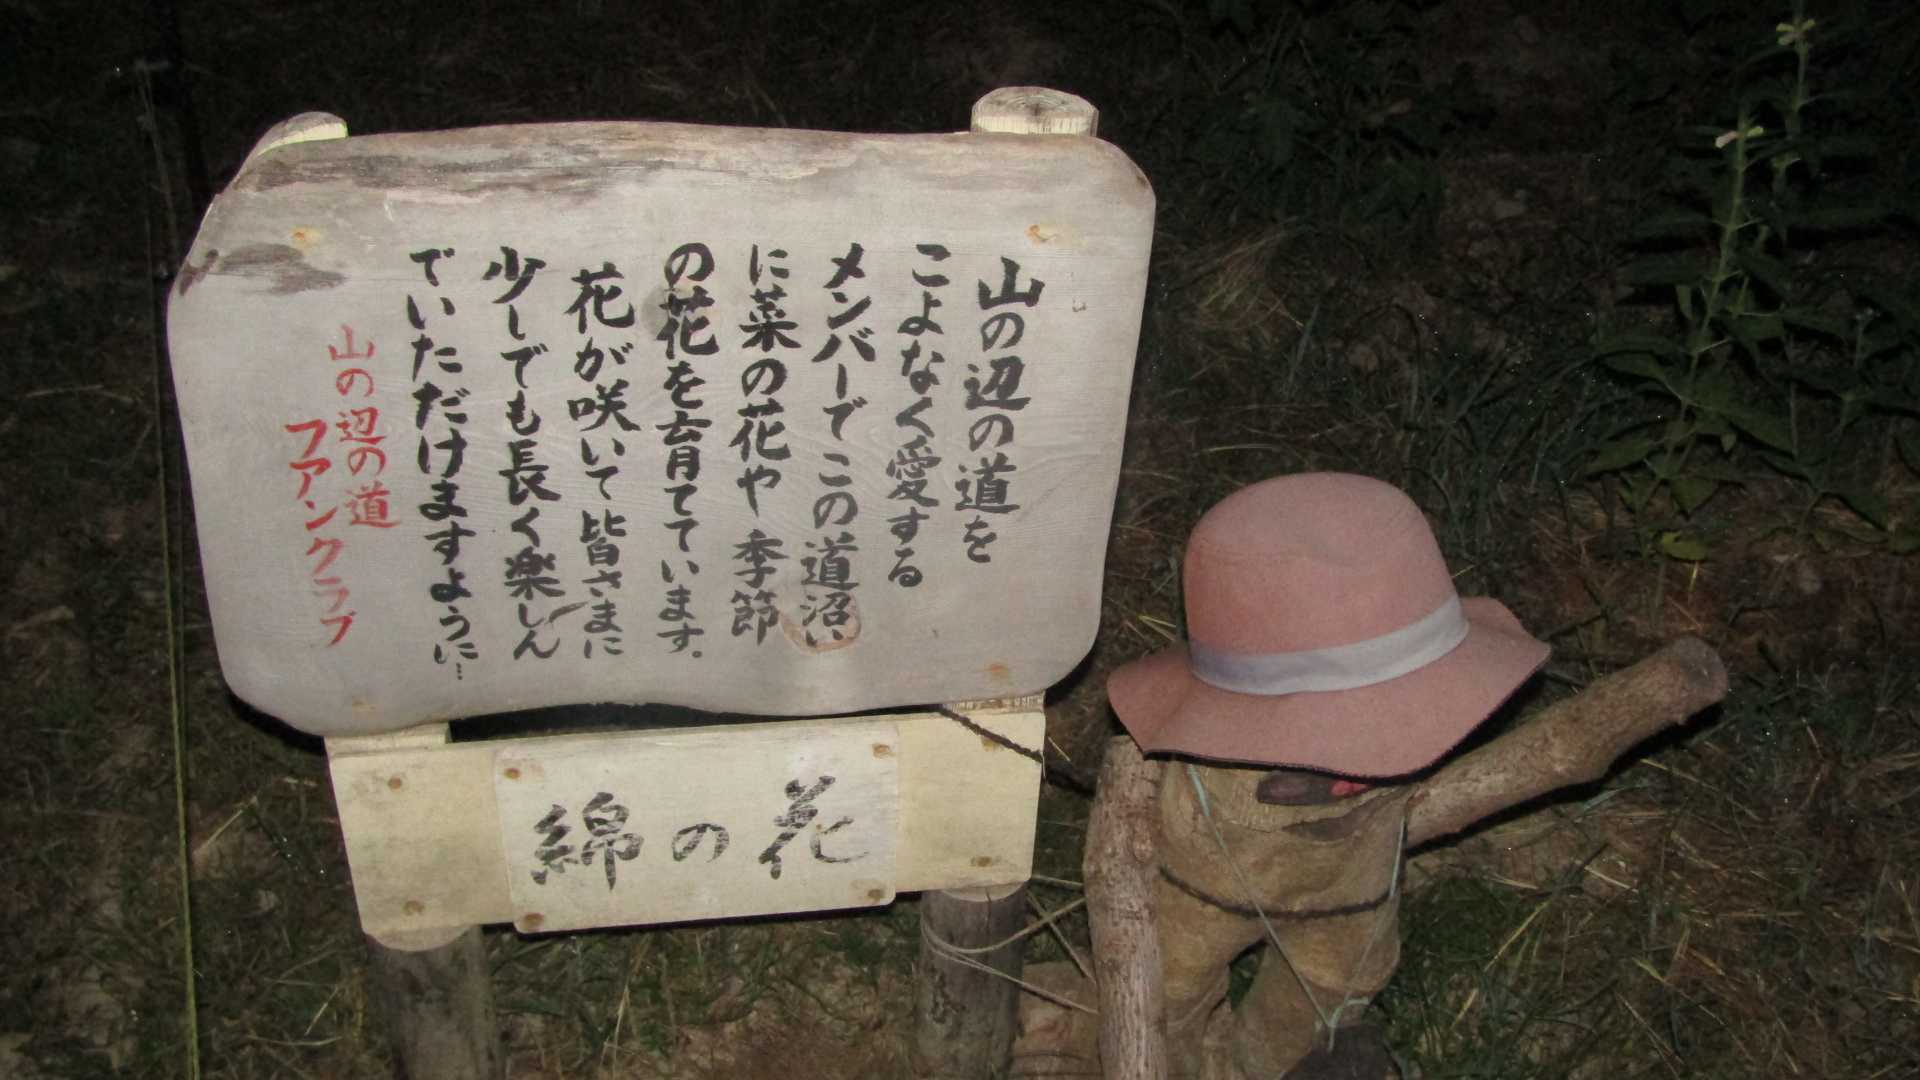 山の辺の道を
こよなく愛する
メンバーでこの道沿い
に菜の花や季節
の花を育てています。
花が咲いて皆さまに
少しでも長く楽しん
でいただけますように…
山の辺の道
ファンクラブ
綿の花